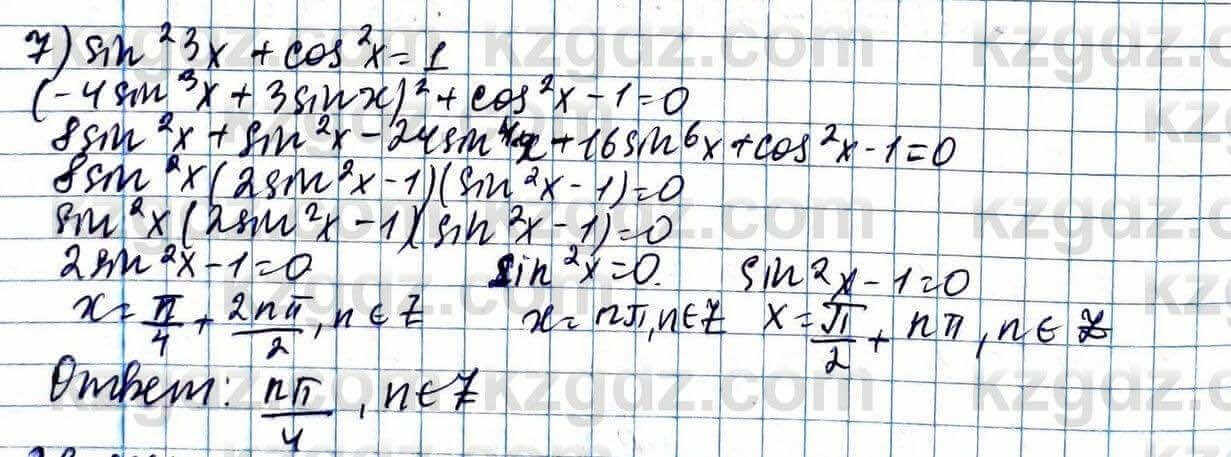 7) sin²3x + cos²x = 1
(-4sin³x + 3sinx)² + cos²x - 1 = 0
8sin²x + sin²x - 24sin⁴x + 16sin⁶x + cos²x - 1 = 0
8sin²x(2sin²x - 1)(sin²x - 1) = 0
sin²x(2sin²x - 1)(sin²x - 1) = 0
2sin²x - 1 = 0 sin²x = 0. sin²x - 1 = 0
x = π/4 + 2nπ/2, n ∈ Z x = nπ, n ∈ Z x = π/2 + nπ, n ∈ Z
Ответ: nπ/4, n ∈ Z